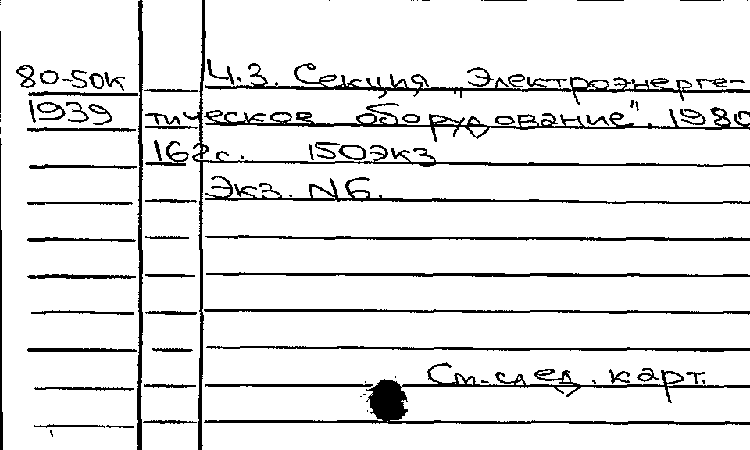 80-50к Ч.3. Секция „Электроэнерге-
1939 тическое оборудование". 1980
162с. 150экз
Экз. N6.
См. след. карт.